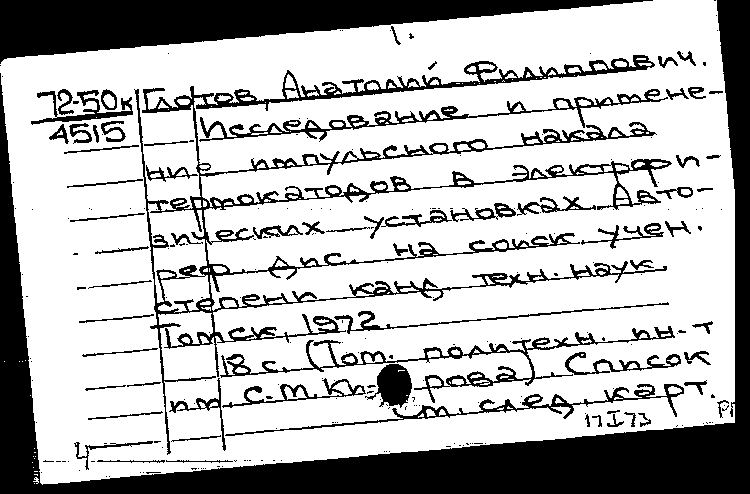 1.
72-50к Глотов, Анатолий Филиппович.
4515 Исследование и примене-
ние импульсного накала
термокатодов в электрофи-
зических установках. Авто-
реф. дис. на соиск. учен.
степени канд. техн. наук.
Томск, 1972.
18 с. (Том. политехн. ин-т
им. С.М. Ки- рова). Список
См. след. карт.
17 I 73
4